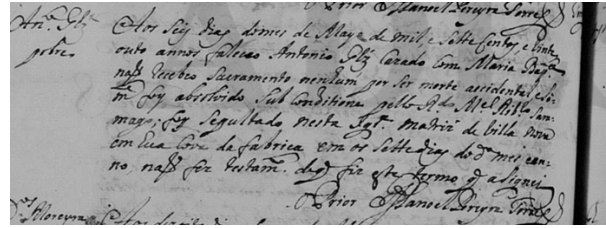 O Prior Manoel Pereyra Torres
Anto. Glz
pobre
Aos seiz dias do mes de Mayo de mil, e sette centos, e vinte
outo annos faleceo Antonio Glz Cazado com Maria
naõ Recebeo Sacramento nenhum por ser morte accidental e
foy absolvido sub conditione pello
foy sepultado nesta Igra. matriz de Villa nova
em hua Cova da fabrica em os sette dias do do. mes e an-
no, naõ fes testamto. de q fiz este termo q asignei
O Prior Manoel Pereyra Torres
Moreyra